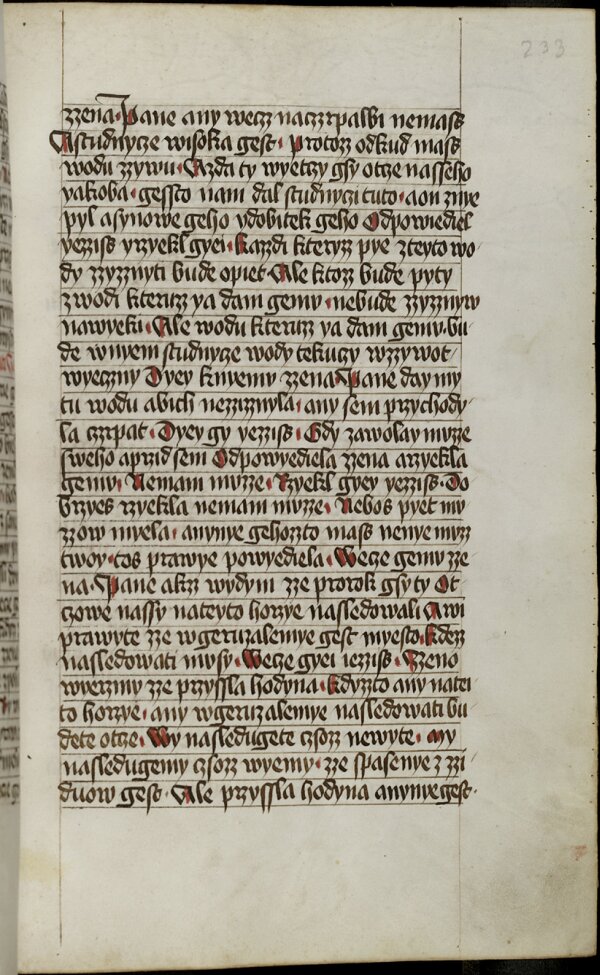 233
zzena · Pane any wecz naczrpalbi nemass
Astudnycze wisoka gest · Protoz odkud mass
wodu zzywu · Azda ty wyetczy gsy otcze nasseho
yakoba · gessto nam dal studnyczi tuto · aon znye
pyl asynowe geho ydobitek geho Odpowiediel
yezziss yrzyekl gyei · Kazzdi kteryz pye zteyto wo
dy zzyznyti bude opiet · Ale ktoz bude pyty
zwodi kteruz ya dam gemu · nebude zzyznyw
nawyeki · Ale wodu kteruz ya dam gemu · bu
de wnyem studnycze wody tekuczy wzzywot
wyeczny Dyey knyemu zzena · Pane day my
tu wodu abich nezziznyla · any sem przychody
la czrpat · Dyey gy yezziss · Gdy zawolay muzze
sweho aprzid sem Odpowyediela zzena arzyekla
gemu · Nemam muzze · Rzyekl gyey yezziss · Do
brzyes rzyekla nemam muzze · Nebos pyet mu
zzow myela · anynye gehozto mass nenye muz
twoy · tos prawye powyediela · Wecze gemu zze
na · Pane akz wydym zze prorok gsy ty Ot
czowe nassy nateyto horzye nasledowali Awi
prawyte zze wgeruzalemye gest myesto · Kdez
nasledowati musy · Wecze gyei iezziss · Zzeno
wyerzmy zze przyssla hodyna · kdyzto any natei
to horzye · any wgeruzalemye nasledowati bu
dete otcze · Wy nasledugete czsoz newyte · My
nasledugemy czsoz wyemy · zze spasenye z zzi
duow gest · Ale przyssla hodyna anynye gest ·